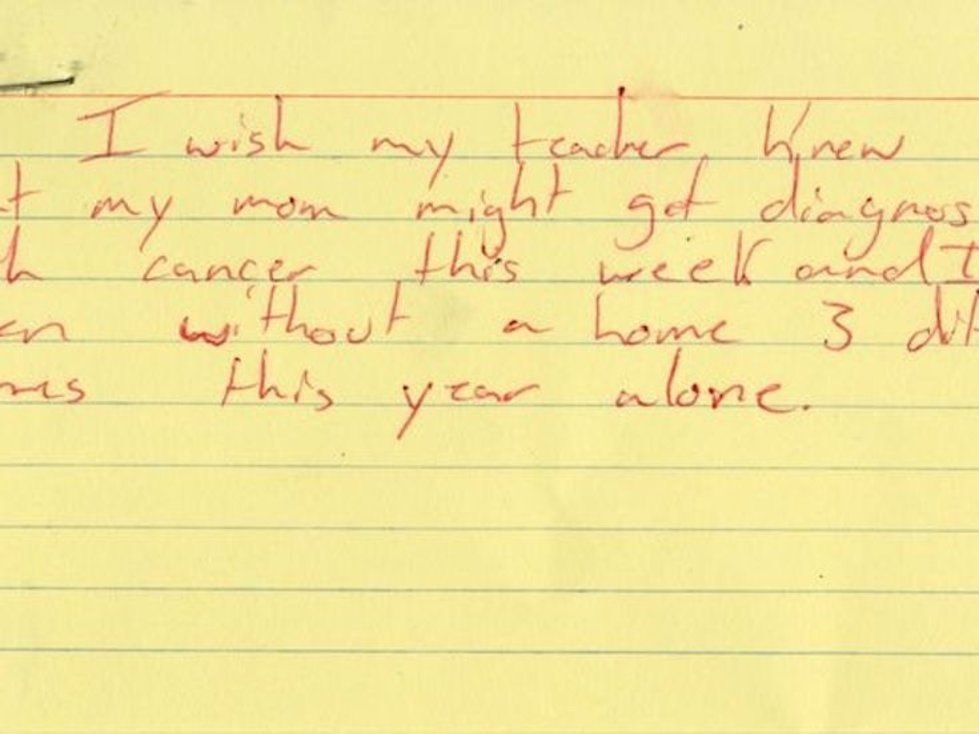 I wish my teacher knew
t my mom might get diagnos
h cancer this week and I
en without a home 3 dif
mes this year alone.